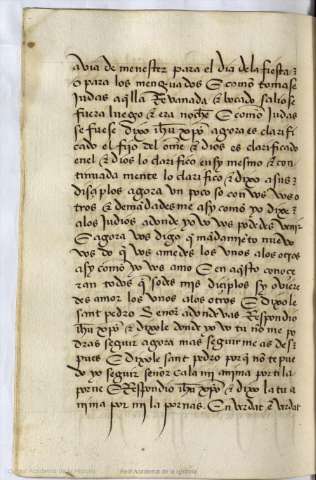 avia de menester para el dia dela fiesta
o para los menguados E como tomase
Judas aq̃lla Revanada & bocado salio se
fuera luego & era noche E como Judas
se fuese Dixo ihũ xp̃o agora es clarifi
cado el fijo del ome & dios es clarificado
enel & dios lo clarifico en sy mesmo & con
tinuada mente lo clarifico & dixo a sus
disçiplos agora un poco so con vos vos o
tros & demandades me asy como yo dixe
alos Judios adonde yo vo vos podedes venir
E agora vos digo q̃ mandamiẽto nuevo
vos do q̃ vos amedes los unos alos otros
asy como yo vos amo E en aq̃sto conoçe
ran todos q̃ sodes mis diçiplos sy oviere
des amor los unos alos otros E dixole
sant pedro Señor adonde vas Respondio
ihũ xp̃o & dixole donde yo vo tu no me po
dras seguir agora mas seguir me as des
pues E dixole sant pedro por q̃ nõ te pue
do yo seguir señor ca la mi anima por ti la
porne E Respondio ihũ xp̃o & dixo la tu a
nima por mi la pornas En verdat & verdat
Real Academia de la Historia